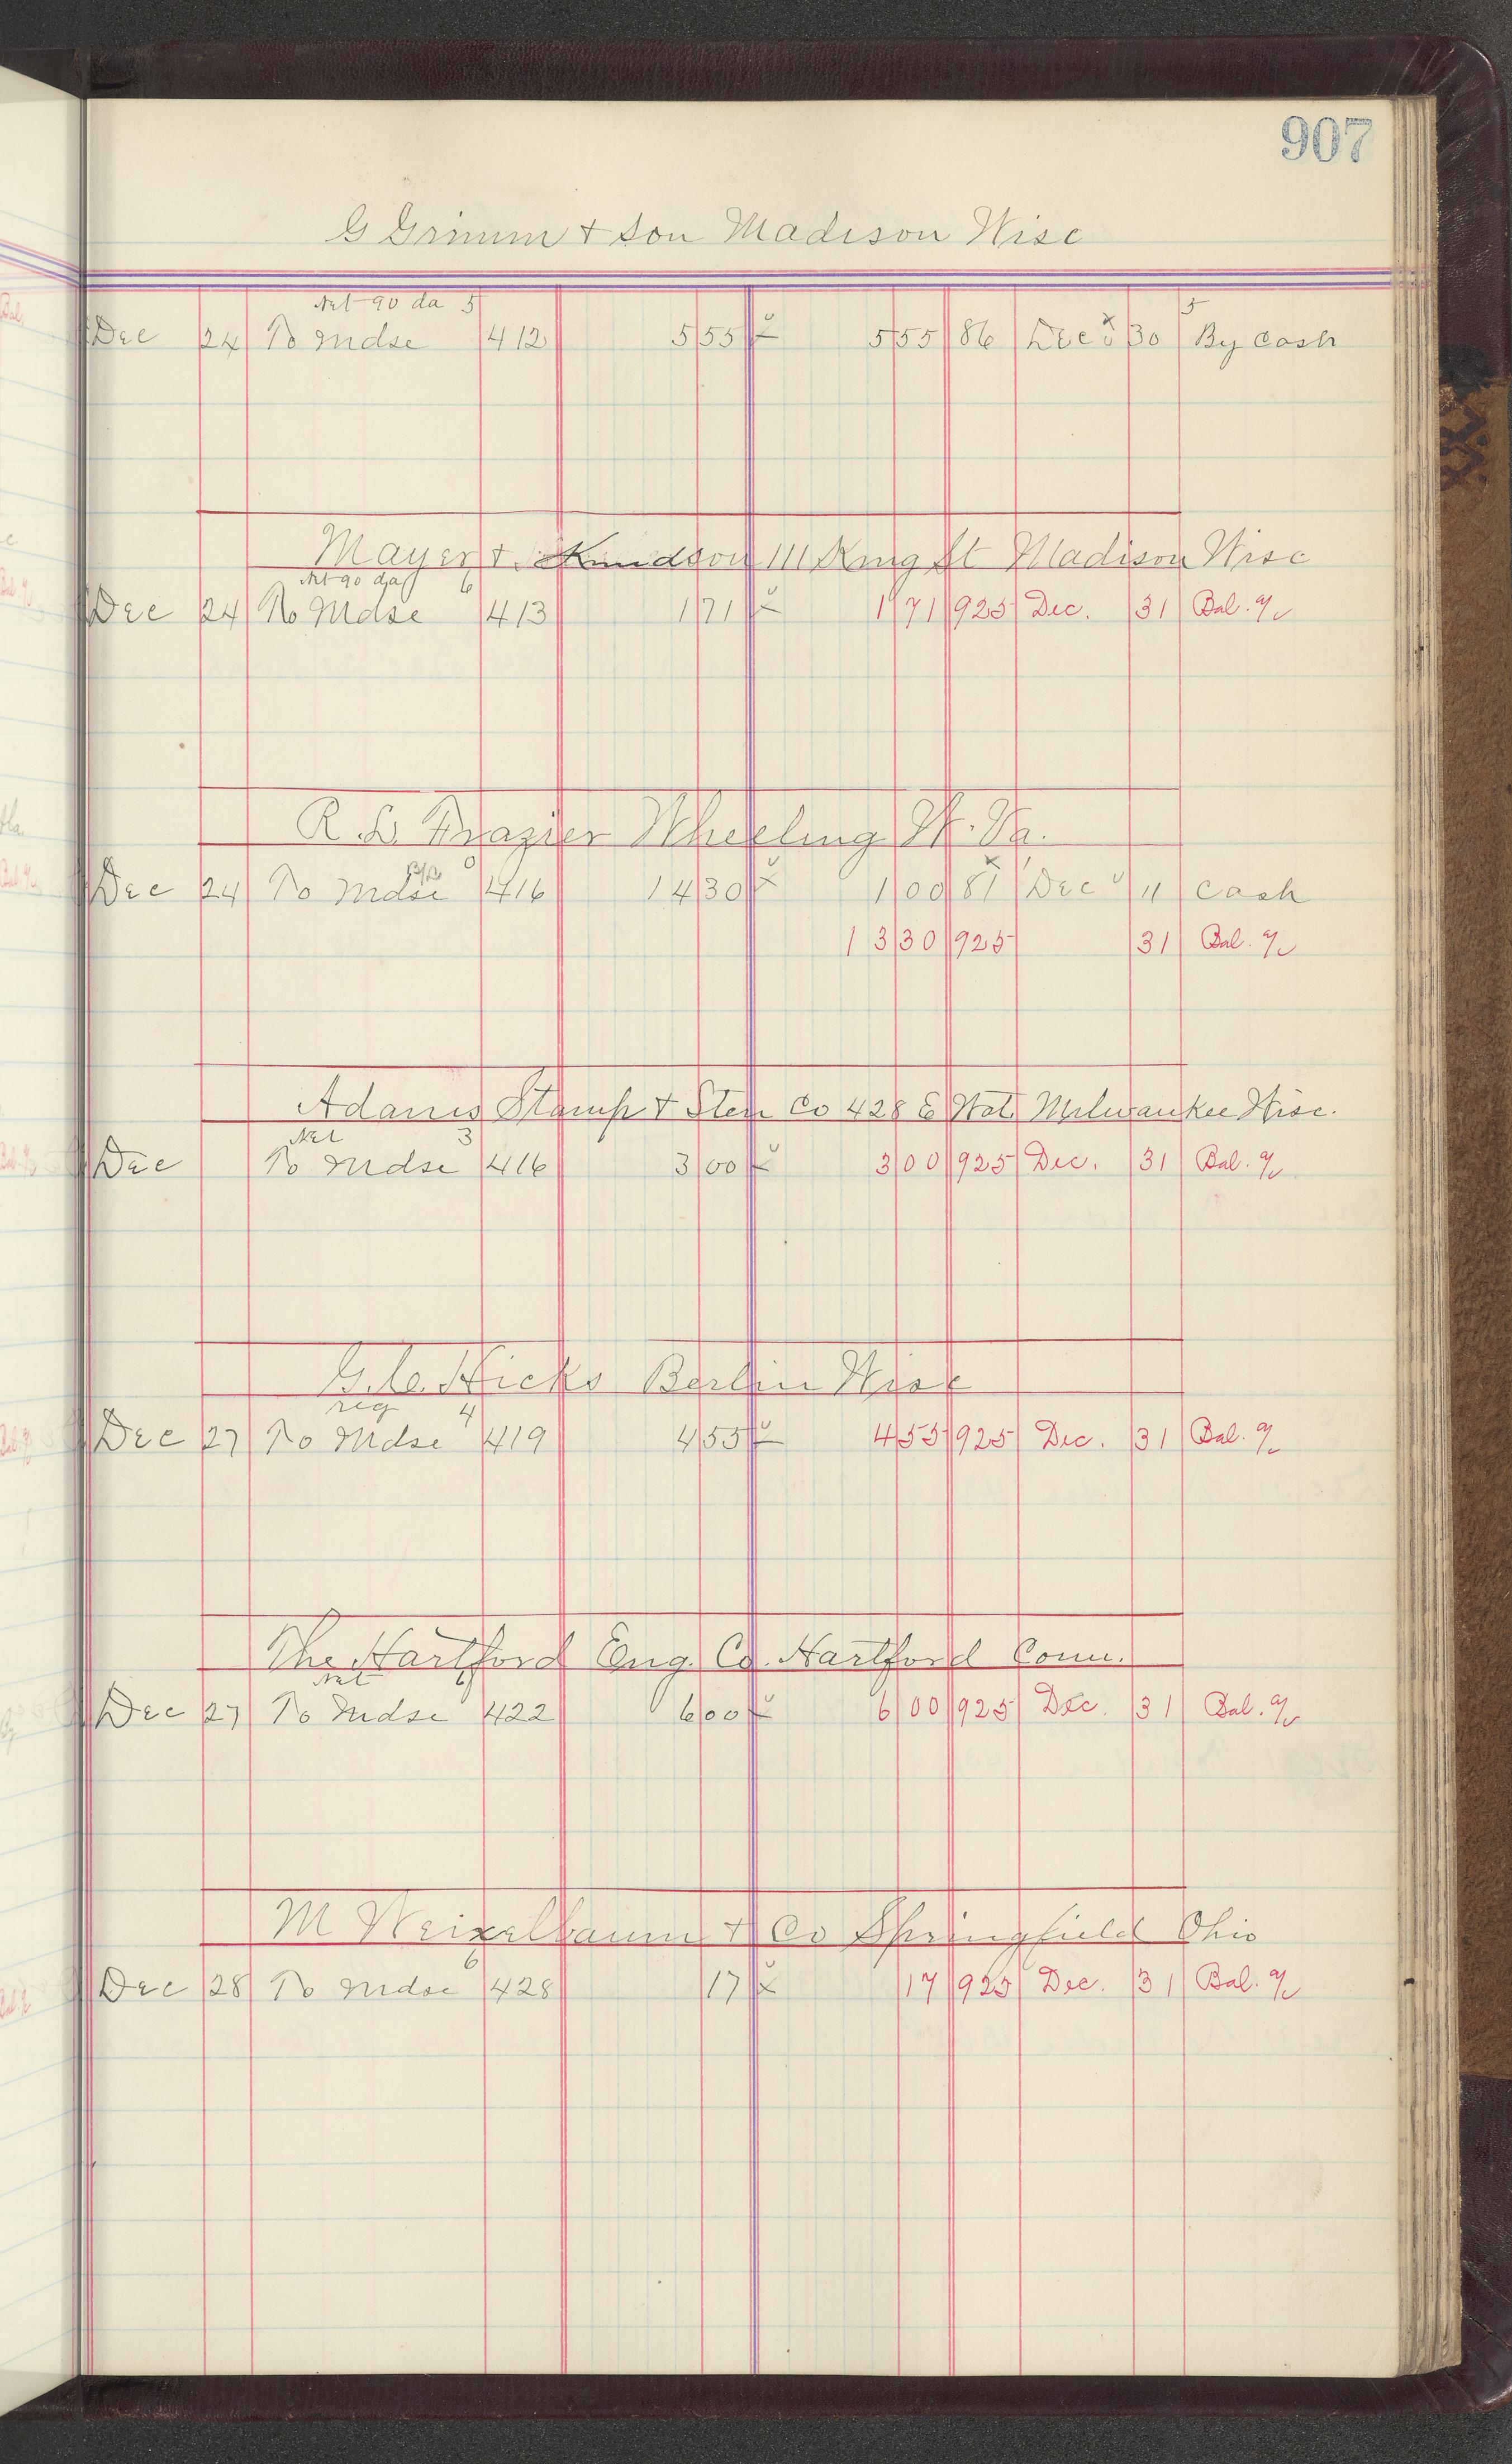 907
G Grimm + Son Madison Wisc
Net 90 da 5
5
Dec 24 To Mdse 412 555 555 86 Dec 30 By Cash
Mayer + Knudson 111 King St Madison Wisc
Net 90 da 6
Dec 24 To Mdse 413 171 171 925 Dec. 31 Bal. a/c
R. L. Frazier Wheeling W. Va.
Dec 24 To Mdse 416 1430 100 81 Dec 11 Cash
1330 925 31 Bal. a/c
Adams Stamp + Sten Co 428 E Wat Milwaukee Wisc.
Net 3
Dec To Mdse 416 300 300 925 Dec. 31 Bal. a/c
G. C. Hicks Berlin Wisc
reg 4
Dec 27 To Mdse 419 455 455 925 Dec. 31 Bal. a/c
The Hartford Eng. Co. Hartford Conn.
Net 6
Dec 27 To Mdse 422 600 600 925 Dec. 31 Bal. a/c
M Weixelbaum + Co Springfield Ohio
6
Dec 28 To Mdse 428 17 17 925 Dec. 31 Bal. a/c